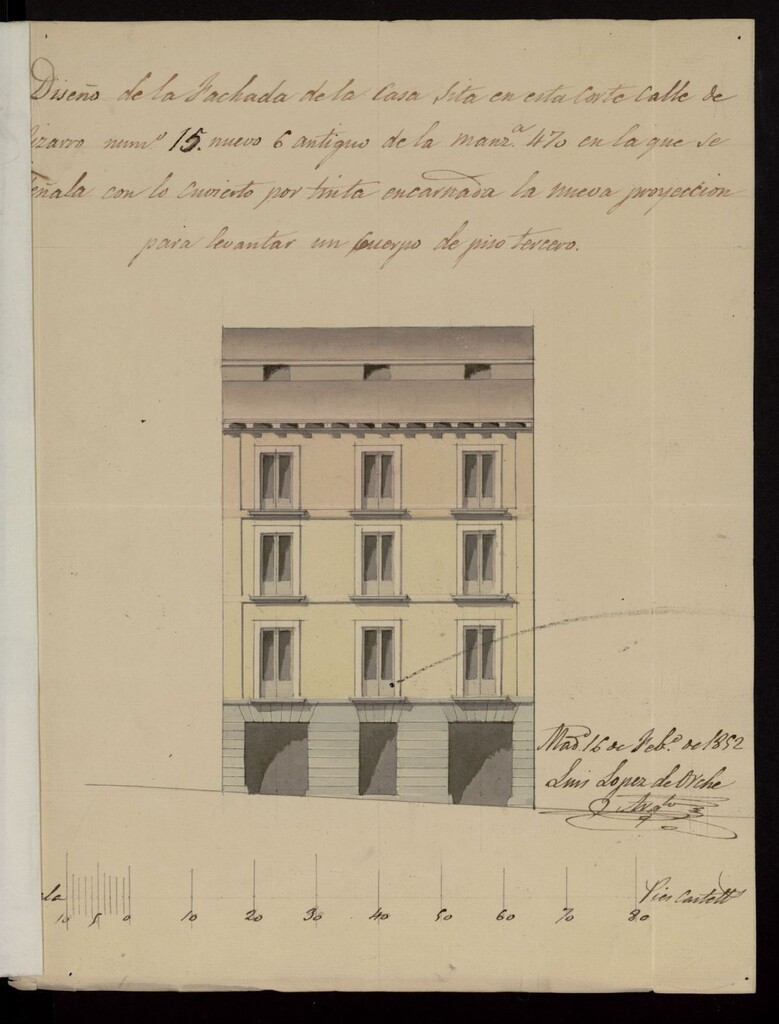 Diseño de la Fachada de la Casa sita en esta Corte Calle de
izarro num.º 15. nuevo 6 antiguo de la manz.ª 470 en la que se
eñala con lo cuvierto por tinta encarnada la nueva proyeccion
para levantar un cuerpo de piso tercero.
Mad.d 16 de Feb.º de 1852
Luis Lopez de Orche
Arq.to
la
10 5 0 10 20 30 40 50 60 70 80
Pies Castell.s